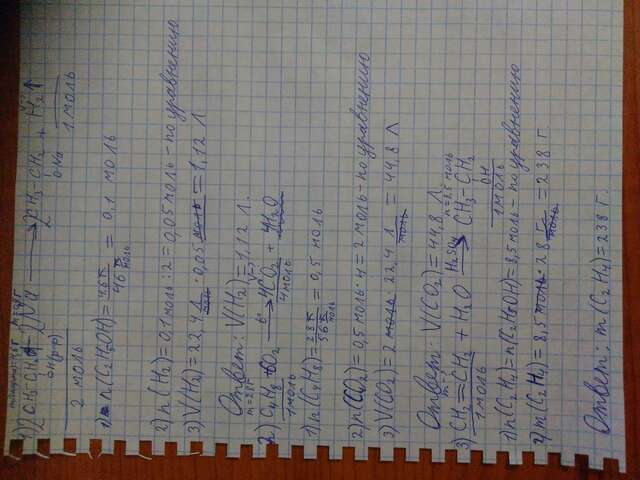 2 моль
1 моль
1) n(C₂H₅OH) = 4,6 г / 46 г/моль = 0,1 моль
2) n(H₂) = 0,1 моль : 2 = 0,05 моль - по уравнению
3) V(H₂) = 22,4 л/моль · 0,05 моль = 1,12 Л
Ответ: V(H₂) = 1,12 Л.
2) C₄H₈ + 6O₂ t° → 4CO₂ + 4H₂O
1 моль
4 моль
1) n(C₄H₈) = 28 г / 56 г/моль = 0,5 моль
2) n(CO₂) = 0,5 моль · 4 = 2 моль - по уравнению
3) V(CO₂) = 2 моль · 22,4 л/моль = 44,8 Л
Ответ: V(CO₂) = 44,8 Л
n = 8,5 моль
3) CH₂ = CH₂ + H₂O H₂SO₄ → CH₃ - CH₂
OH
1 моль
1 моль
1) n(C₂H₄) = n(C₂H₅OH) = 8,5 моль - по уравнению
2) m(C₂H₄) = 8,5 моль · 28 г/моль = 238 г.
Ответ: m(C₂H₄) = 238 г.